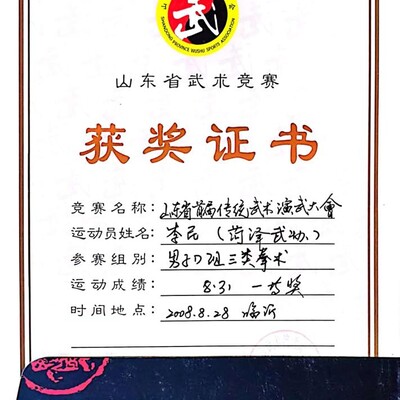 武
SHANDONG PROVINCE WUSHU SPORTS ASSOCIATION
山东省武术竞赛
获奖证书
竞赛名称: 山东省首届传统武术演武大會
运动员姓名: 李民 (菏泽武协)
参赛组别: 男子D组三类拳术
运动成绩: 8.31 一等奖
时间地点: 2008.8.28 临沂